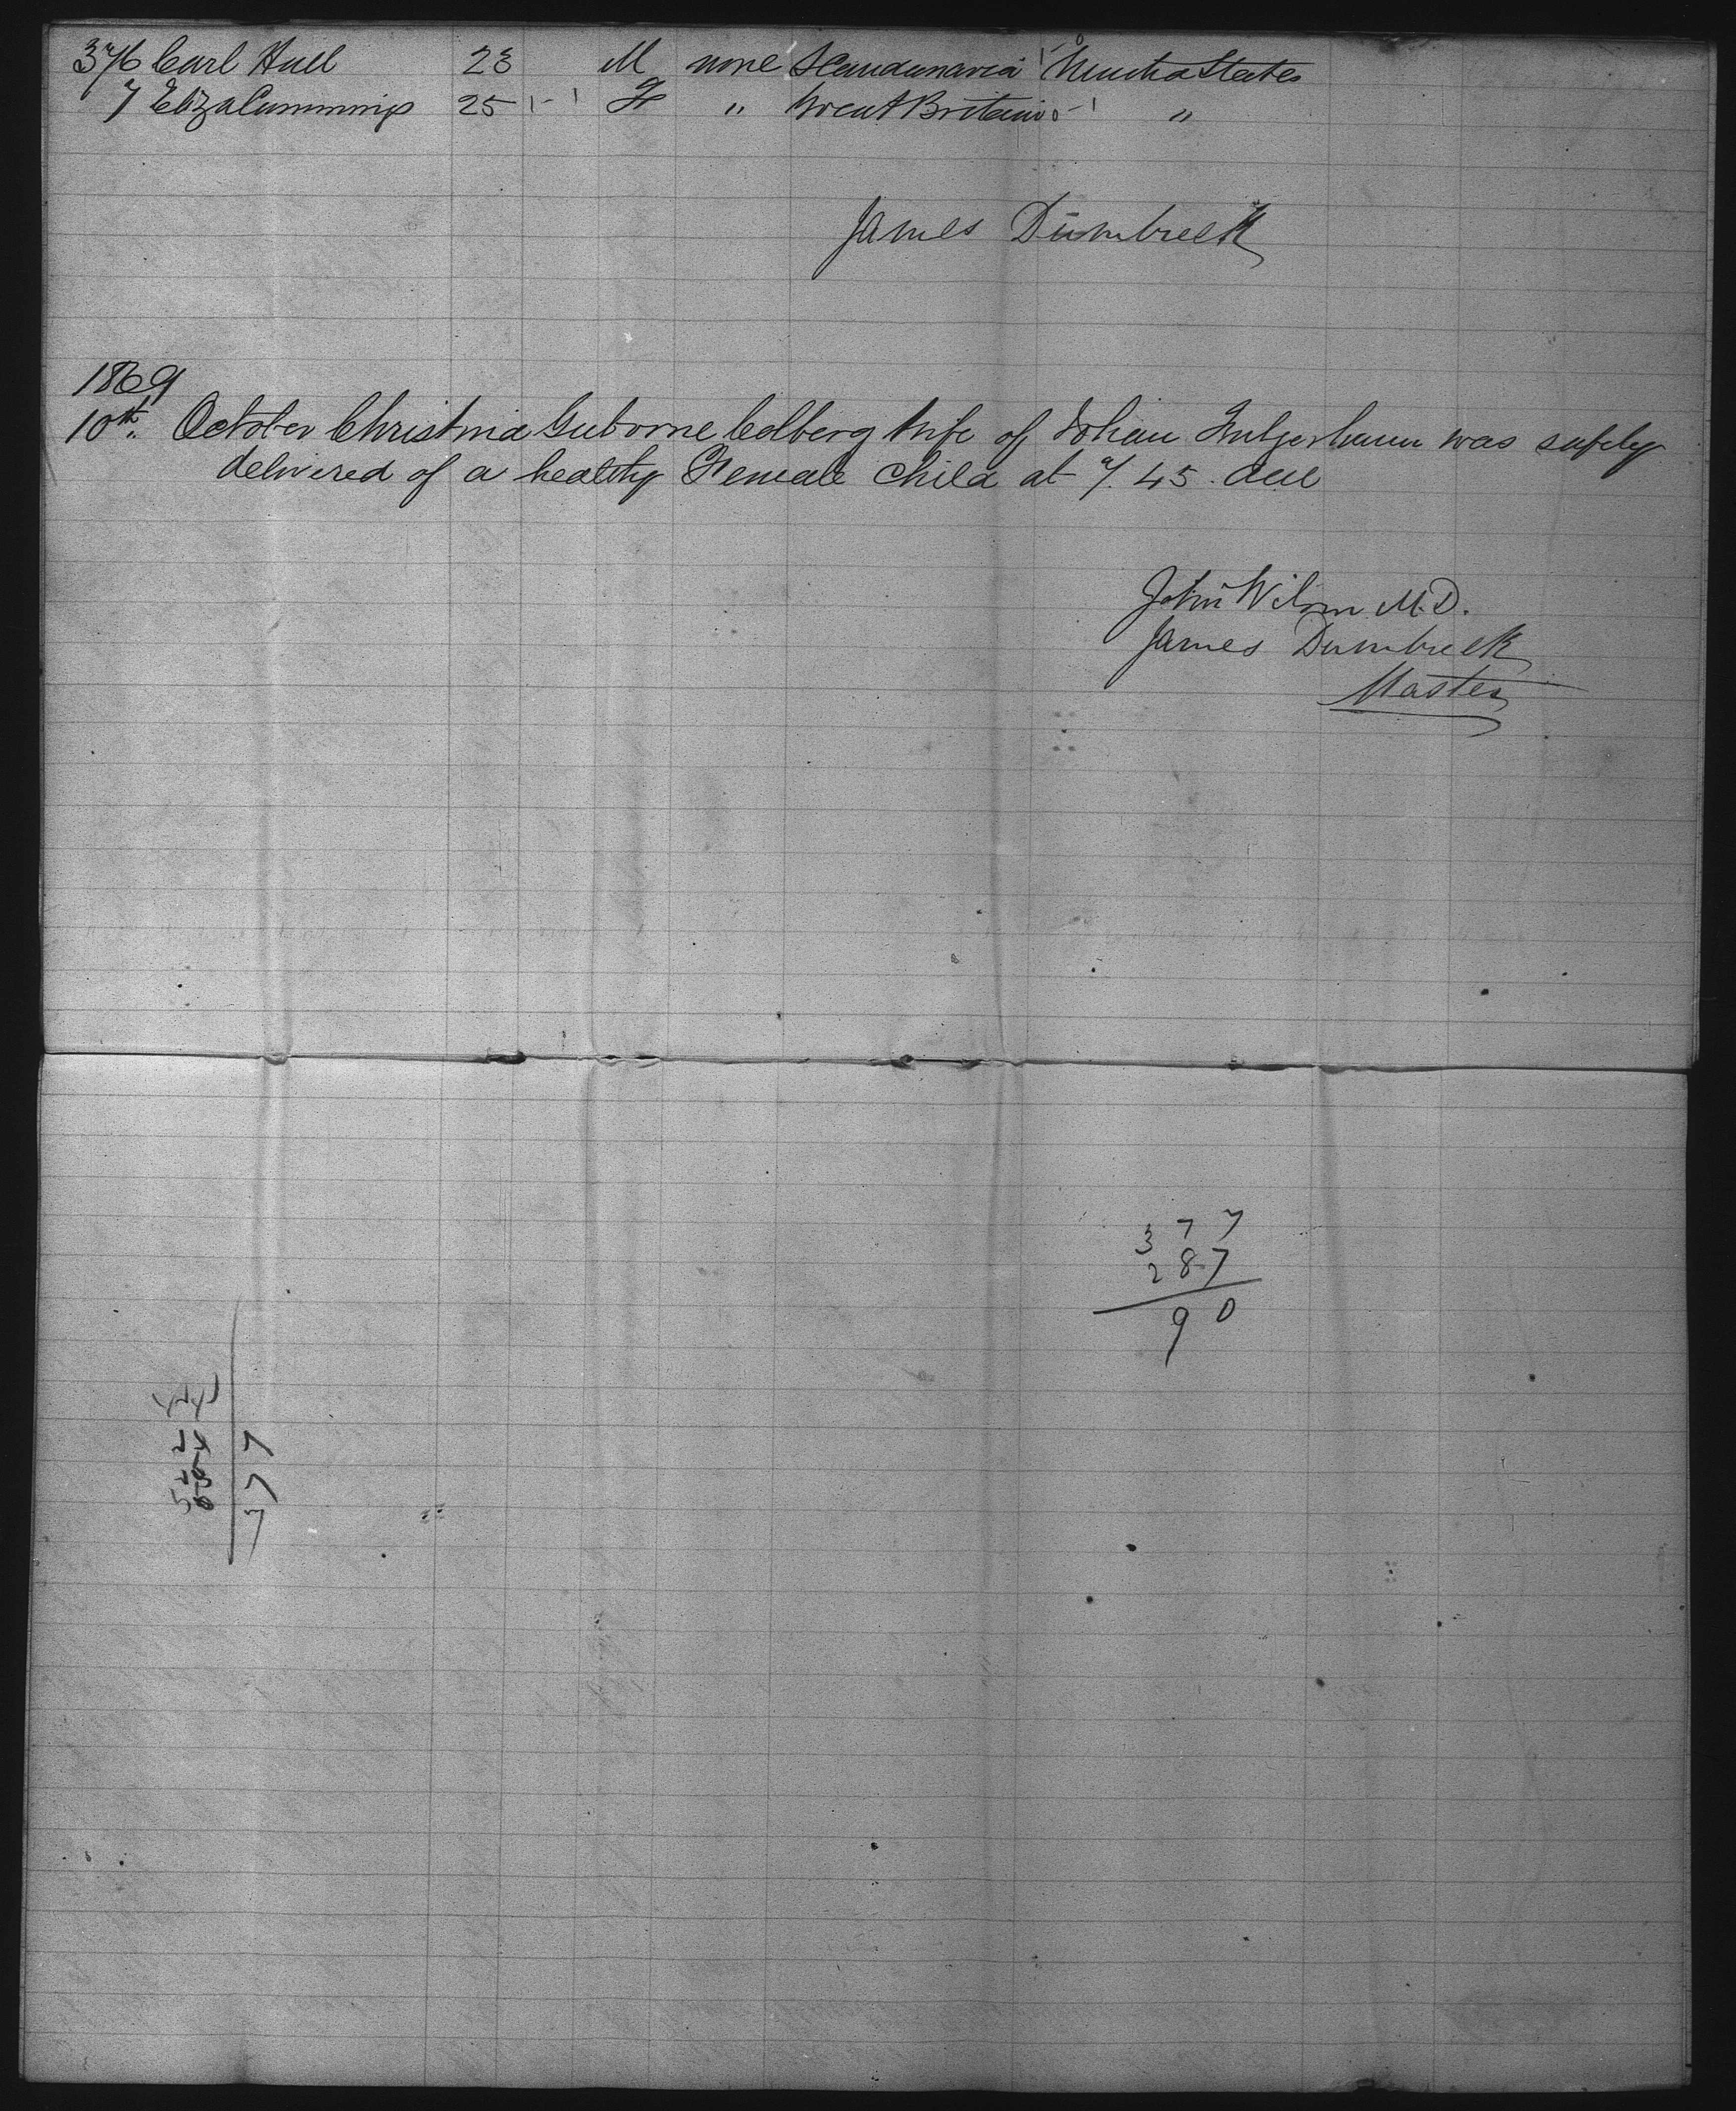 376 Carl Hull 23 M none Scandanavia United States
7 Eliza Cummings 25 F " Great Britain "
James Dumbreck
1869
10th October Christina Colberg Wife of Johan was safely
delivered of a healthy Female Child at 7.45. am
John Wilson M.D.
James Dumbreck
Master
377
287
90
377